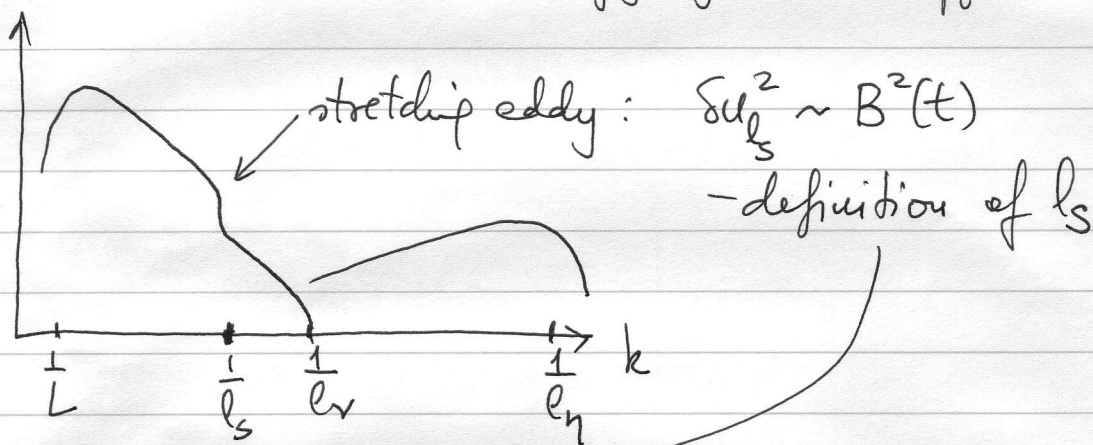 stretching eddy: δu²_{ℓ_s} ~ B²(t)
- definition of ℓ_s
1/L 1/ℓ_s 1/ℓ_ν 1/ℓ_η k